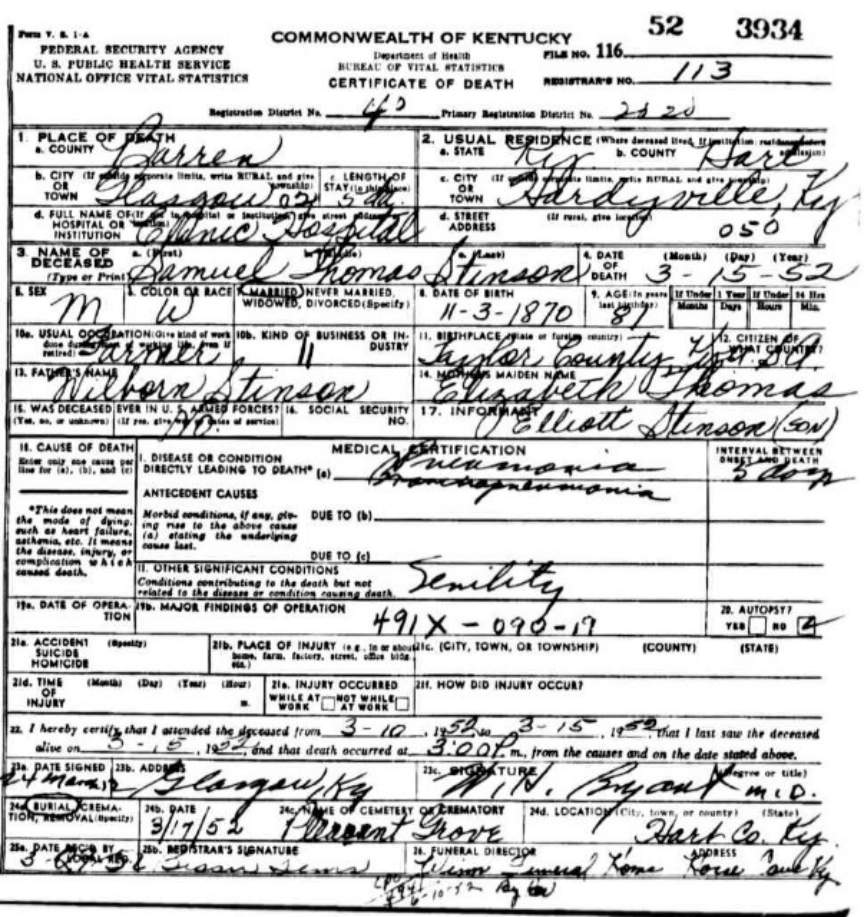 Form V. S. 1-A
FEDERAL SECURITY AGENCY
U. S. PUBLIC HEALTH SERVICE
NATIONAL OFFICE VITAL STATISTICS
COMMONWEALTH OF KENTUCKY
Department of Health
BUREAU OF VITAL STATISTICS
CERTIFICATE OF DEATH
52 3934
FILE NO. 116
REGISTRAR'S NO. 113
Registration District No. 40 Primary Registration District No. 2320
1. PLACE OF DEATH
a. COUNTY Barren
2. USUAL RESIDENCE (Where deceased lived. If institution: residence before admission)
a. STATE Ky. b. COUNTY Hart
b. CITY (If outside corporate limits, write RURAL and give township) OR TOWN Glasgow 02
c. LENGTH OF STAY (in this place) 5 da.
c. CITY (If outside corporate limits, write RURAL and give township) OR TOWN Hardyville, Ky
d. FULL NAME OF (If not in hospital or institution, give street address) HOSPITAL OR INSTITUTION Clinic Hospital
d. STREET ADDRESS (If rural, give location) 050
3. NAME OF DECEASED (Type or Print) a. (First) b. (Middle) c. (Last)
Samuel Thomas Stinson
4. DATE OF DEATH (Month) (Day) (Year) 3-15-52
5. SEX M
6. COLOR OR RACE W
7. MARRIED, NEVER MARRIED, WIDOWED, DIVORCED (Specify)
8. DATE OF BIRTH 11-3-1870
9. AGE (In years last birthday) 81
If Under 1 Year Months Days
If Under 24 Hrs Hours Min.
10a. USUAL OCCUPATION (Give kind of work done during most of working life, even if retired) Farmer
10b. KIND OF BUSINESS OR INDUSTRY "
11. BIRTHPLACE (State or foreign country) Taylor County Ky.
12. CITIZEN OF WHAT COUNTRY? U.S.A.
13. FATHER'S NAME Wilborn Stinson
14. MOTHER'S MAIDEN NAME Elizabeth Thomas
15. WAS DECEASED EVER IN U. S. ARMED FORCES? (Yes, no, or unknown) (If yes, give war or dates of service) no.
16. SOCIAL SECURITY NO.
17. INFORMANT Elliott Stinson (SON)
18. CAUSE OF DEATH
Enter only one cause per line for (a), (b), and (c)
*This does not mean the mode of dying, such as heart failure, asthenia, etc. It means the disease, injury, or complication which caused death.
MEDICAL CERTIFICATION
INTERVAL BETWEEN ONSET AND DEATH
I. DISEASE OR CONDITION DIRECTLY LEADING TO DEATH* (a) Pneumonia 5 days
Bronchopneumonia
ANTECEDENT CAUSES
Morbid conditions, if any, giving rise to the above cause (a) stating the underlying cause last.
DUE TO (b)
DUE TO (c)
II. OTHER SIGNIFICANT CONDITIONS
Conditions contributing to the death but not related to the disease or condition causing death.
Senility
19a. DATE OF OPERATION
19b. MAJOR FINDINGS OF OPERATION
491X-090-19
20. AUTOPSY?
YES NO
21a. ACCIDENT SUICIDE HOMICIDE (Specify)
21b. PLACE OF INJURY (e.g., in or about home, farm, factory, street, office bldg. etc.)
21c. (CITY, TOWN, OR TOWNSHIP) (COUNTY) (STATE)
21d. TIME OF INJURY (Month) (Day) (Year) (Hour) m.
21e. INJURY OCCURRED
WHILE AT WORK NOT WHILE AT WORK
21f. HOW DID INJURY OCCUR?
22. I hereby certify that I attended the deceased from 3-10, 1952 to 3-15, 1952, that I last saw the deceased
alive on 3-15, 1952, and that death occurred at 3:00 P. m., from the causes and on the date stated above.
23a. DATE SIGNED 24 Mar 52
23b. ADDRESS Glasgow, Ky
23c. SIGNATURE (Degree or title) W. H. Bryant M.D.
24a. BURIAL, CREMATION, REMOVAL (Specify)
24b. DATE 3/17/52
24c. NAME OF CEMETERY OR CREMATORY Pleasant Grove
24d. LOCATION (City, town, or county) (State) Hart Co. Ky.
25a. DATE REC'D BY LOCAL REG.
25b. REGISTRAR'S SIGNATURE
26. FUNERAL DIRECTOR ADDRESS
Funeral Home Horse Cave Ky
6-10-52